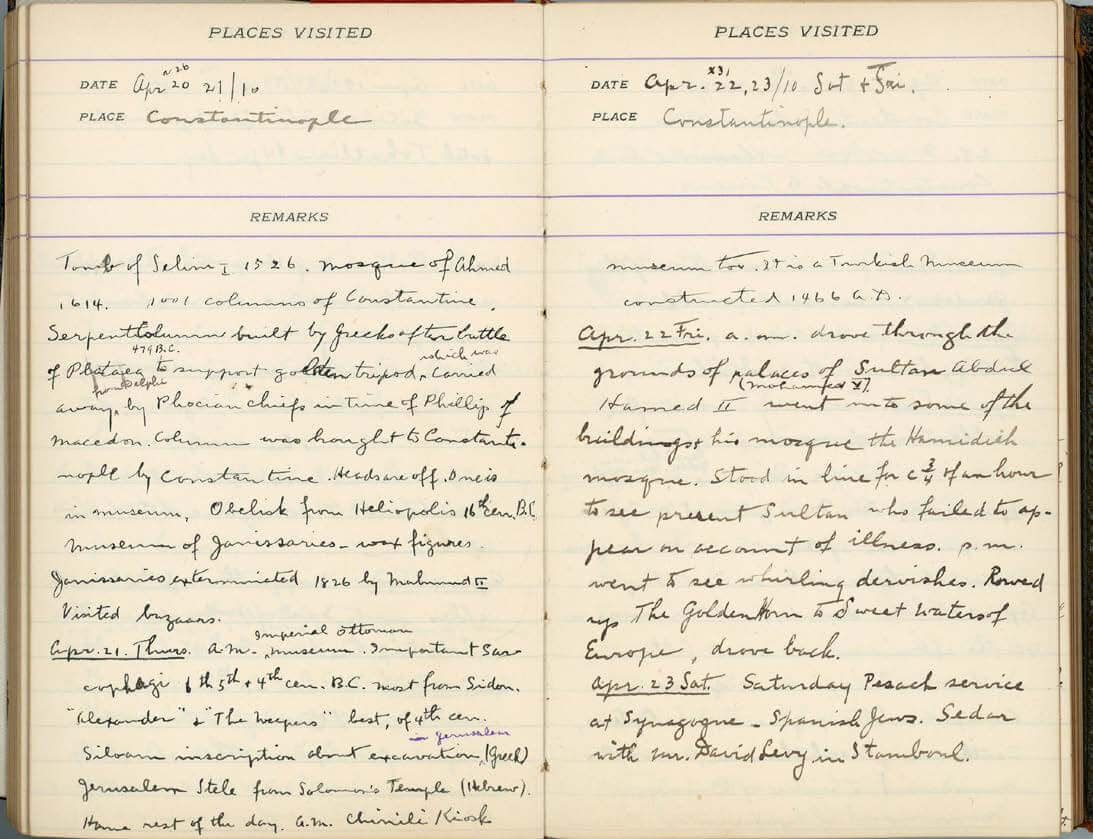 PLACES VISITED
DATE Apr 20 21/10
PLACE Constantinople
REMARKS
Tomb of Selim I 1526. Mosque of Ahmed
1614. 1001 columns of Constantine
Serpent Column built by Greeks after battle
479 B.C. which was
of Plataea to support golden tripod, carried
from Delphi
away, by Phocian chiefs in time of Phillip of
Macedon. Column was brought to Constanti-
nople by Constantine. Heads are off. One is
in museum. Obelisk from Heliopolis 16th cen. B.C.
Museum of Janissaries - wax figures
Janissaries exterminated 1826 by Mahmud II
Visited bazaars.
Imperial Ottoman
Apr. 21. Thurs. A.M. museum. Important Sar-
cophagi 6th 5th + 4th cen. B.C. most from Sidon.
"Alexander" + "The Weepers" best, of 4th cen.
in Jerusalem
Siloam inscription about excavation, (Greek)
Jerusalem Stele from Solomon's Temple (Hebrew).
Home rest of the day. A.M. Chinili Kiosk
PLACES VISITED
DATE Apr. 22, 23/10 Sat + Fri.
PLACE Constantinople.
REMARKS
museum too. It is a Turkish Museum
constructed 1466 A.D.
Apr. 22 Fri. a.m. drove through the
grounds of palaces of Sultan Abdul
(Mohamed V)
Hamed II went into some of the
buildings + his mosque the Hamidieh
mosque. Stood in line for c 3/4 of an hour
to see present Sultan who failed to ap-
pear on account of illness. p.m.
went to see whirling dervishes. Rowed
up The Golden Horn to Sweet Waters of
Europe, drove back.
Apr. 23 Sat. Saturday Pesach service
at Synagogue - Spanish Jews. Sedar
with Mr. David Levy in Stamboul.